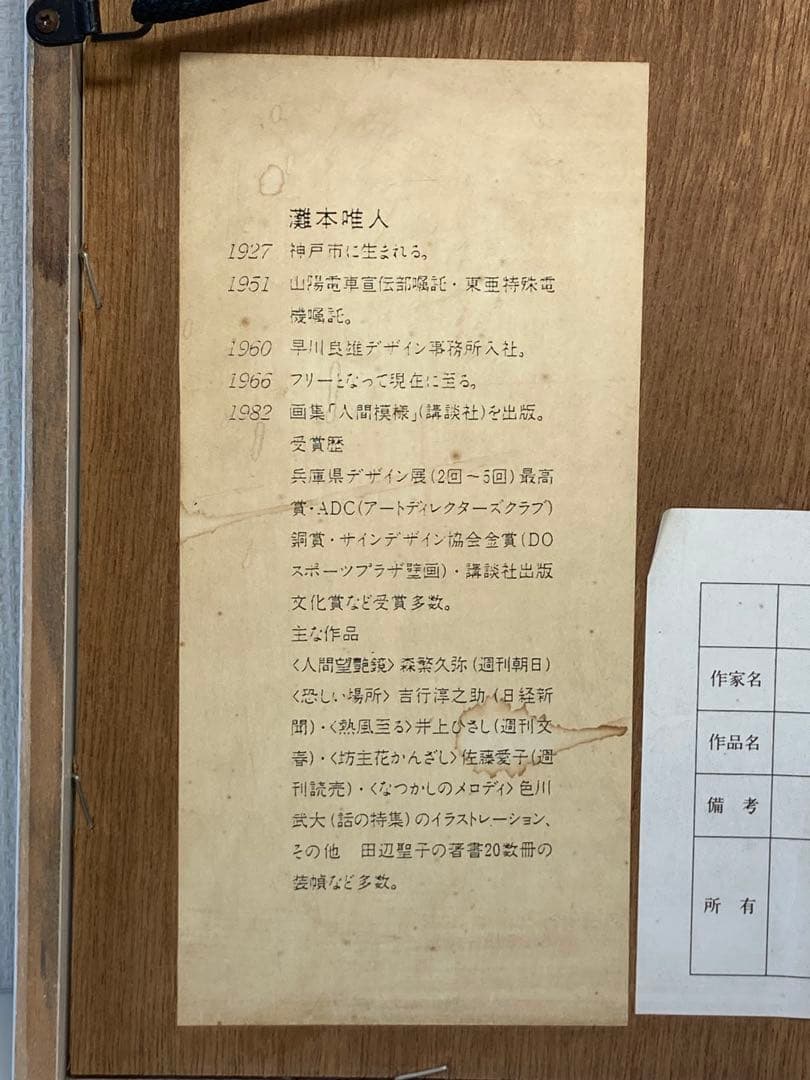 灘本唯人
1927 神戸市に生まれる。
1951 山陽電車宣伝部嘱託・東亜特殊電
機嘱託。
1960 早川良雄デザイン事務所入社。
1966 フリーとなって現在に至る。
1982 画集「人間模様」(講談社)を出版。
受賞歴
兵庫県デザイン展(2回〜5回)最高
賞・ADC(アートディレクターズクラブ)
銅賞・サインデザイン協会金賞(DO
スポーツプラザ壁画)・講談社出版
文化賞など受賞多数。
主な作品
〈人間望艶鏡〉森繁久弥(週刊朝日)
〈恐しい場所〉吉行淳之助(日経新
聞)・〈熱風至る〉井上ひさし(週刊文
春)・〈坊主花かんざし〉佐藤愛子(週
刊読売)・〈なつかしのメロディ〉色川
武大(話の特集)のイラストレーション、
その他 田辺聖子の著書20数冊の
装幀など多数。
作家名
作品名
備考
所有